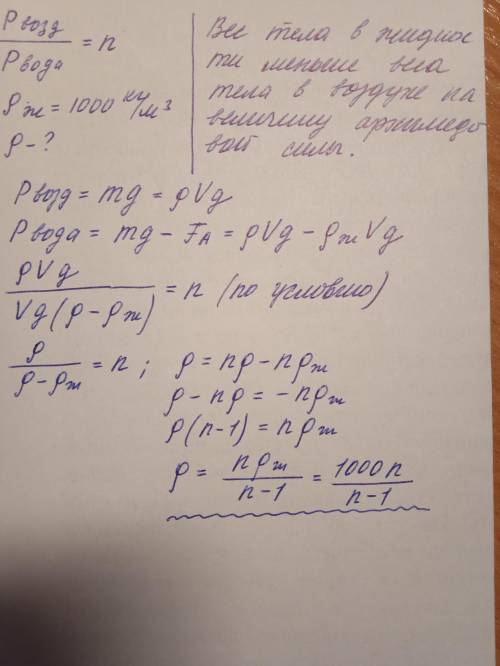 Pвозд / Pвода = n
ρж = 1000 кг/м³
ρ - ?
Вес тела в жиднос
ти меньше веса
тела в воздухе на
величину архимедо
вой силы.
Pвозд = mg = ρVg
Pвода = mg - FA = ρVg - ρжVg
ρVg / Vg(ρ - ρж) = n (по условию)
ρ / ρ - ρж = n ; ρ = nρ - nρж
ρ - nρ = - nρж
ρ(n-1) = nρж
ρ = nρж / n-1 = 1000n / n-1